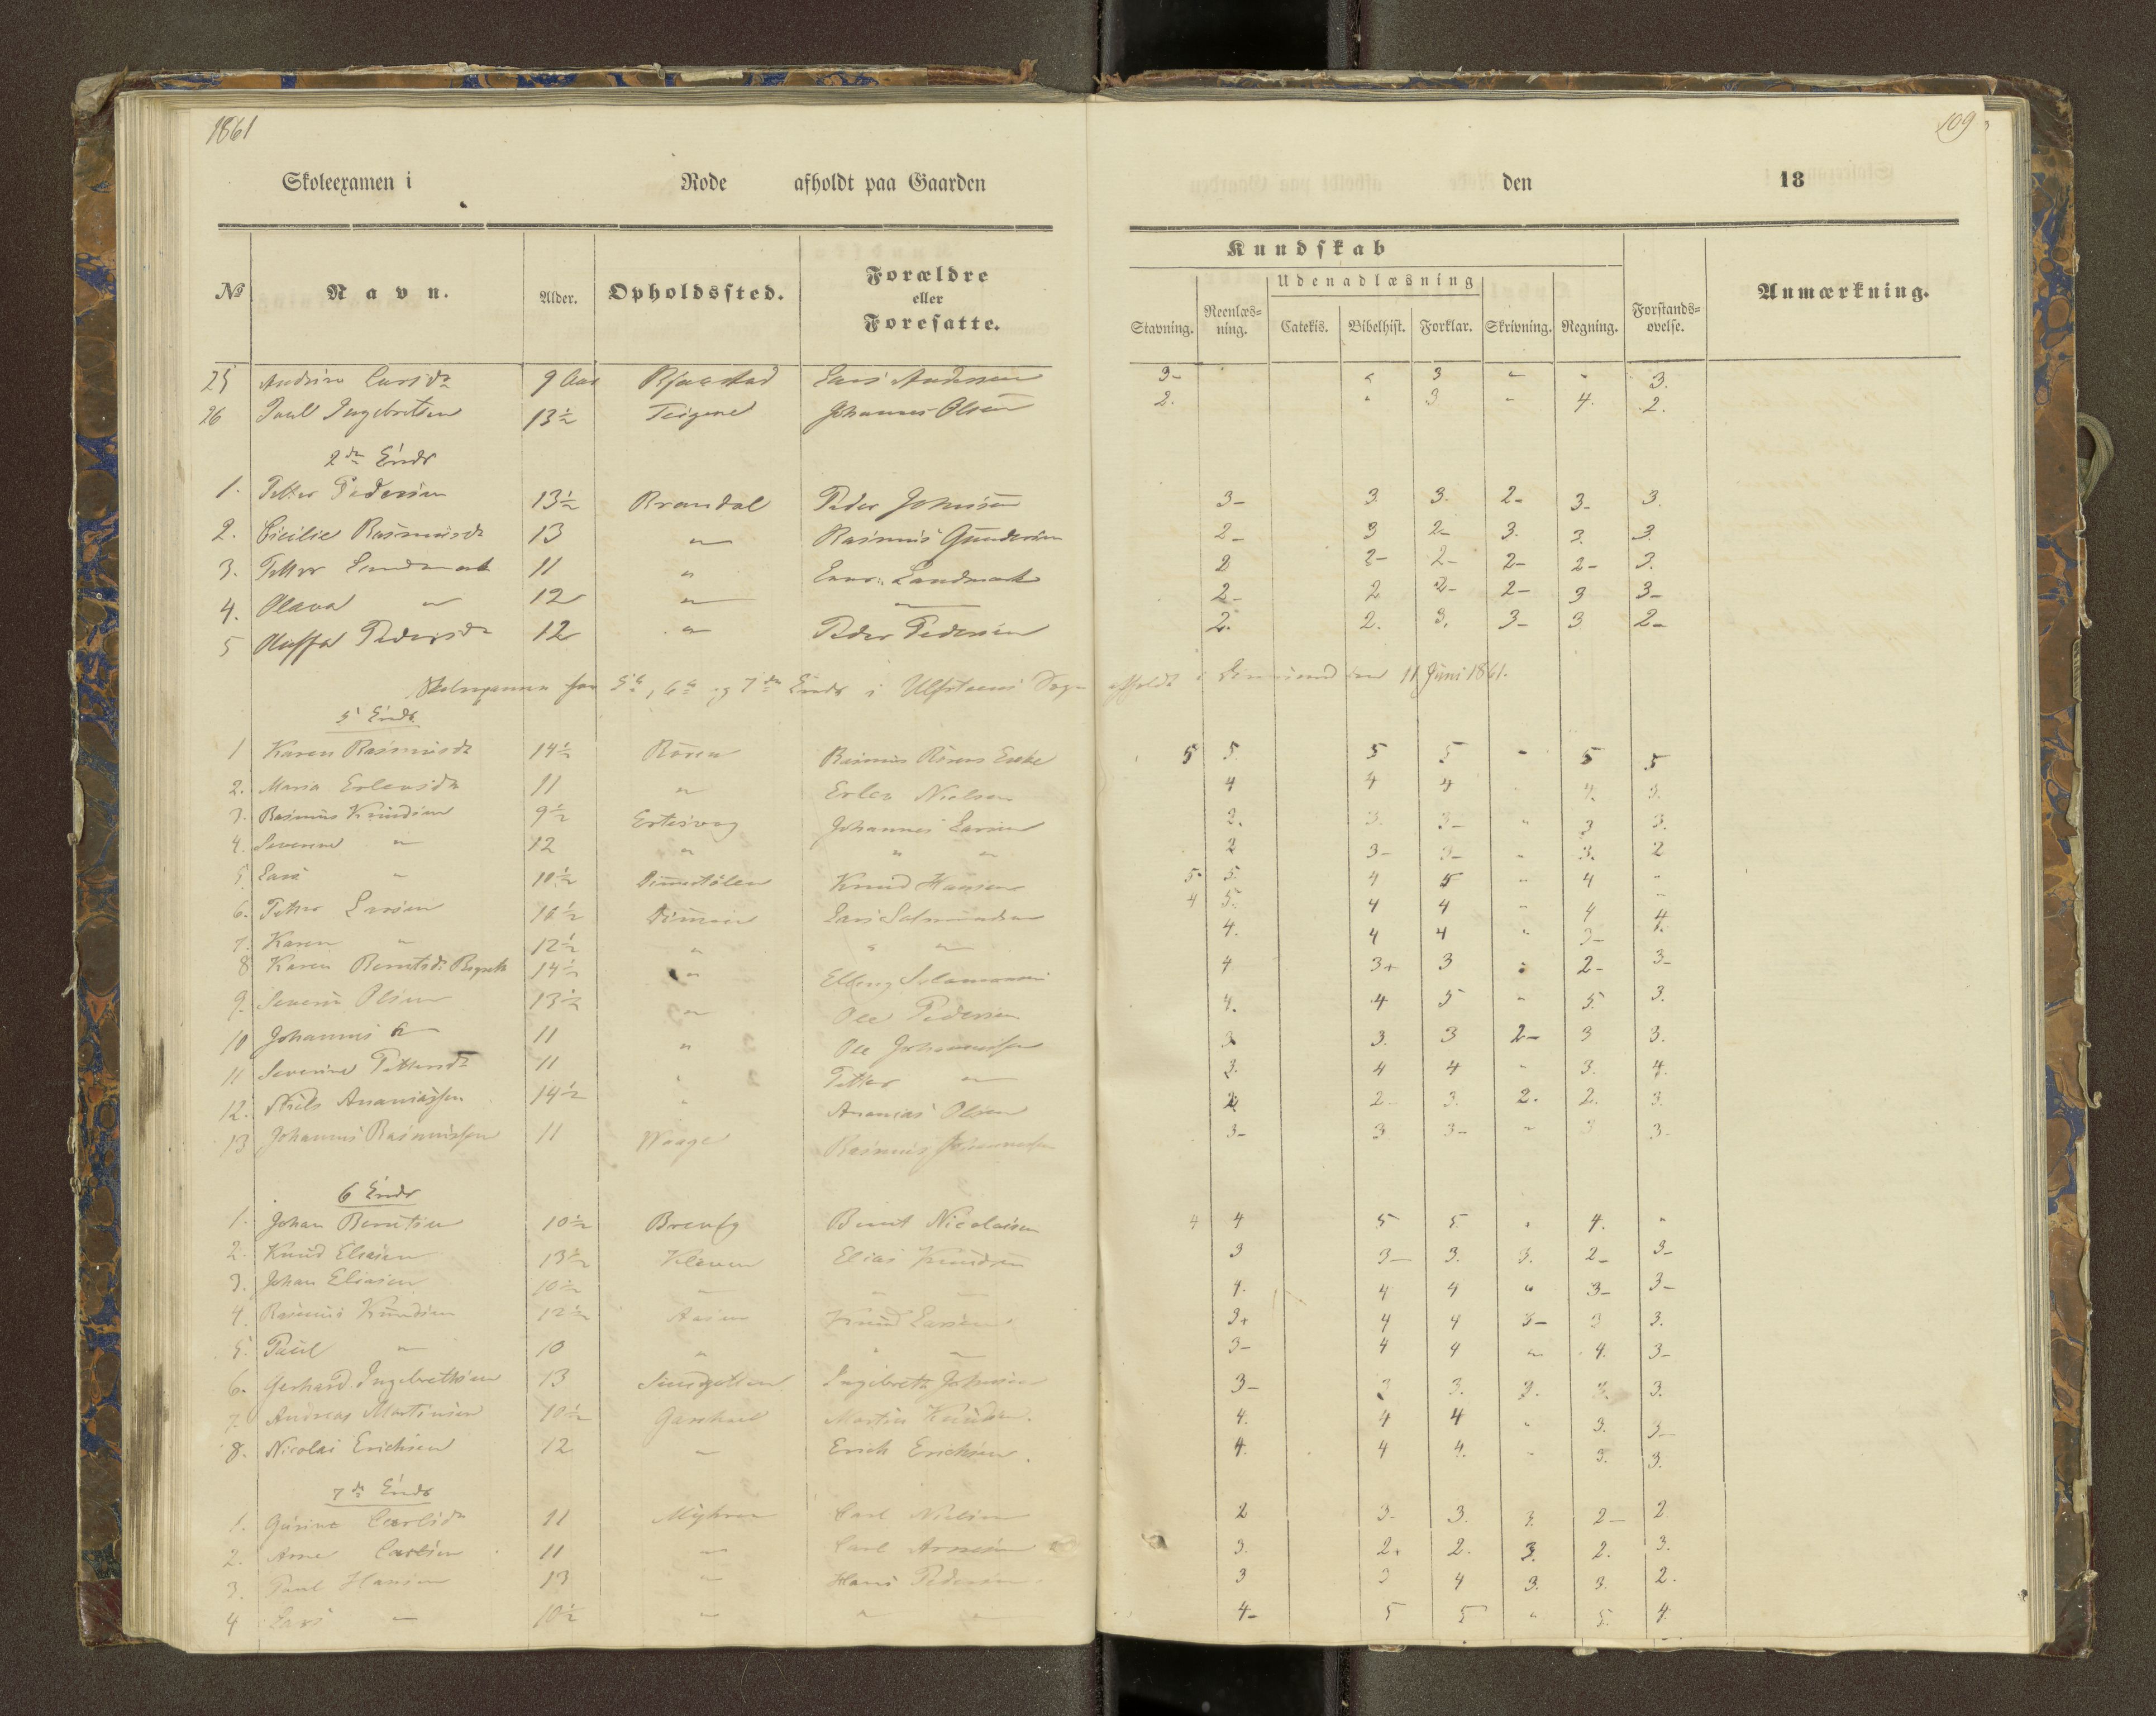 1861
109
Skoleexamen i Rode afholdt paa Gaarden den 18
Kundskab
Udenadlæsning
№ Navn. Alder. Opholdssted. Forældre eller Foresatte. Stavning. Reenlæsning. Catekis. Bibelhist. Forklar. Skrivning. Regning. Forstandsøvelse. Anmærkning.
25 Larsdr 9 Aar Lars Andersen 3- " 3 " " 3.
26 Paul Ingebretsen 13½ Teigene Johannes Olsen 2. " 3 " 4. 2.
2den
1. Petter Pedersen 13½ Brandal Peder Johnsen 3- 3. 3. 2- 3- 3.
2. Cicilie Rasmusdr 13 " Rasmus Gundersen 2- 3 2- 3. 3. 3.
3. Petter Landmark 11 " Landmark 2 2- 2- 2- 2- 3.
4. Olava " 12 " " 2- 2 2- 2- 3 3-
5 Pedersdr 12 " Peder Pedersen 2. 2. 3. 3- 3 2-
Skoleexamen for 5te, 6te og 7de i Ulfsteens Sogn afholdt i den 11 Juni 1861.
5
1 Karen Rasmusdr 14½ Røren Rasmus Rørens Enke 5 5. 5 5 " 5 5
2. Maria Erlensdr 11 " Erlen Nielsen 4 4 4 4. 3.
3. Rasmus Knudsen 9½ Ertesvog Johannes Larsen 2. 3. 3- " 3 3.
4. Severine " 12 " " " 2 3- 3- " 3. 2
5 Lars " 10½ Knud Hansen 5- 5. 4 5 " 4 "
6. Petter Larsen 10½ Dimmen Lars Salmundsen 4 5. 4 4 " 4 4.
7. Karen " 12½ " " " 4. 4 4 " 3- 4.
8 Karen Berntsdr 14½ " Elling Salamonsen 4 3+ 3 " 2- 3-
9. Severin Olsen 13½ " Ole Pedersen 4. 4 5 " 5. 3.
10 Johannes " 11 " Ole Johannessen 3 3. 3 2- 3 3.
11 Severine Pettersdr 11 " Petter " 3. 4 4 " 3. 4.
12. Niels Ananiassen 14½ " Ananias Olsen 2 2 3. 2. 2. 3.
13 Johannes Rasmussen 11 Waage Rasmus Johannessen 3- 3 3- " 3 3-
6
1. Johan Berntsen 10½ Bernt Nicolaisen 4 4 5 5. " 4. "
2. Knud Eliasen 13½ Kleven Elias Knudsen 3 3- 3. 3. 2- 3-
3. Johan Eliasen 10½ " " " 4. 4 4 " 3- 3-
4. Rasmus Knudsen 12½ Aasen Knud Larsen 3+ 4 4 3- 3 3.
5. Paul " 10 " " " 3- 4 4 " 4. 3-
6. Gerhard Ingebrethsen 13 Ingebreth Johnsen 3- 3 3. 3. 3. 3.
7. Andreas Martinsen 10½ Martin Knudsen. 4. 4 4 " 3. 3-
8. Nicolai Erichsen 12 " Erich Erichsen. 4. 4 4. " 3. 3.
7de
1. Carlsdr 11 Myhren Carl Nielsen 2 3- 3. 3. 2- 2
2. Arne Carlsen 11 " Carl Arnesen 3. 2+ 2. 3. 2. 3.
3. Paul Hansen 13 " Hans Pedersen 3 3 4 3. 3. 2.
4 Lars " 10½ " " " 4- 5 5 " 5. 4.